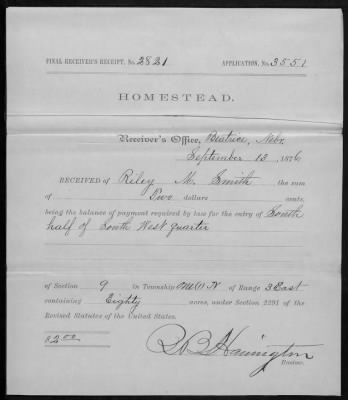 FINAL RECEIVER'S RECEIPT, No. 2821 APPLICATION, No. 3551
HOMESTEAD.
Receiver's Office, Beatrice, Nebr.
September 13, 1876
RECEIVED OF Riley M. Smith the sum
of Two dollars cents,
being the balance of payment required by law for the entry of South
half of South West quarter
of Section 9 in Township One (1) N of Range 3 East
containing Eighty acres, under Section 2291 of the
Revised Statutes of the United States.
$2.00 R B Harrington
Receiver.